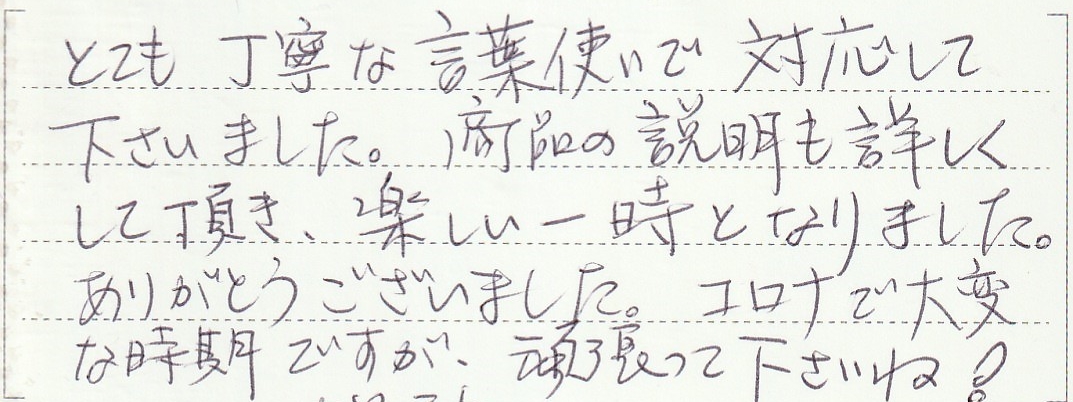 とても丁寧な言葉使いで対応して
下さいました。商品の説明も詳しく
して頂き、楽しい一時となりました。
ありがとうございました。コロナで大変
な時期ですが、頑張って下さいね!